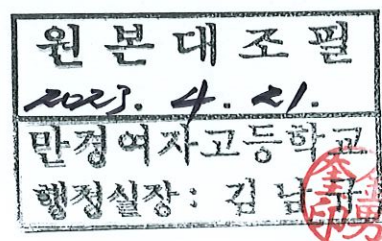 원본대조필
2023. 4. 21.
만경여자고등학교
행정실장: 김남